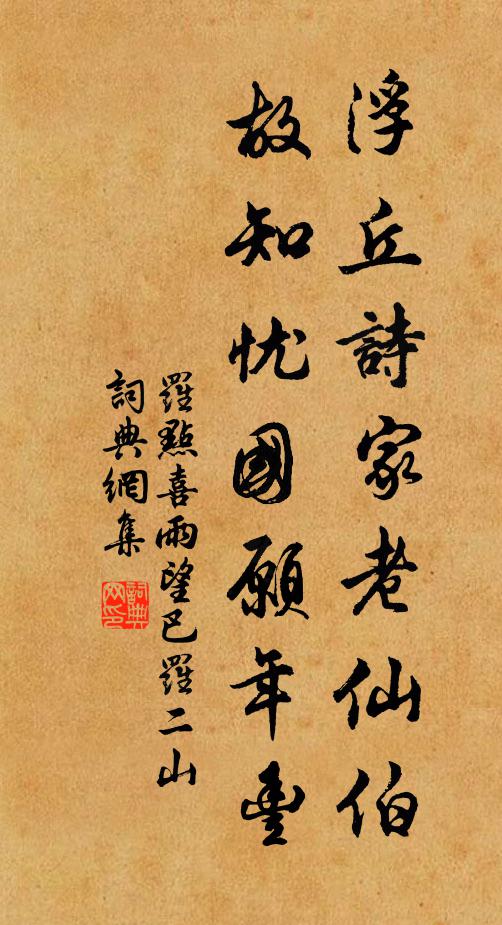 浮丘詩家老仙伯
故知忧國願年豐
羅點喜雨望巴羅二山
詞典網集
詞典
网印